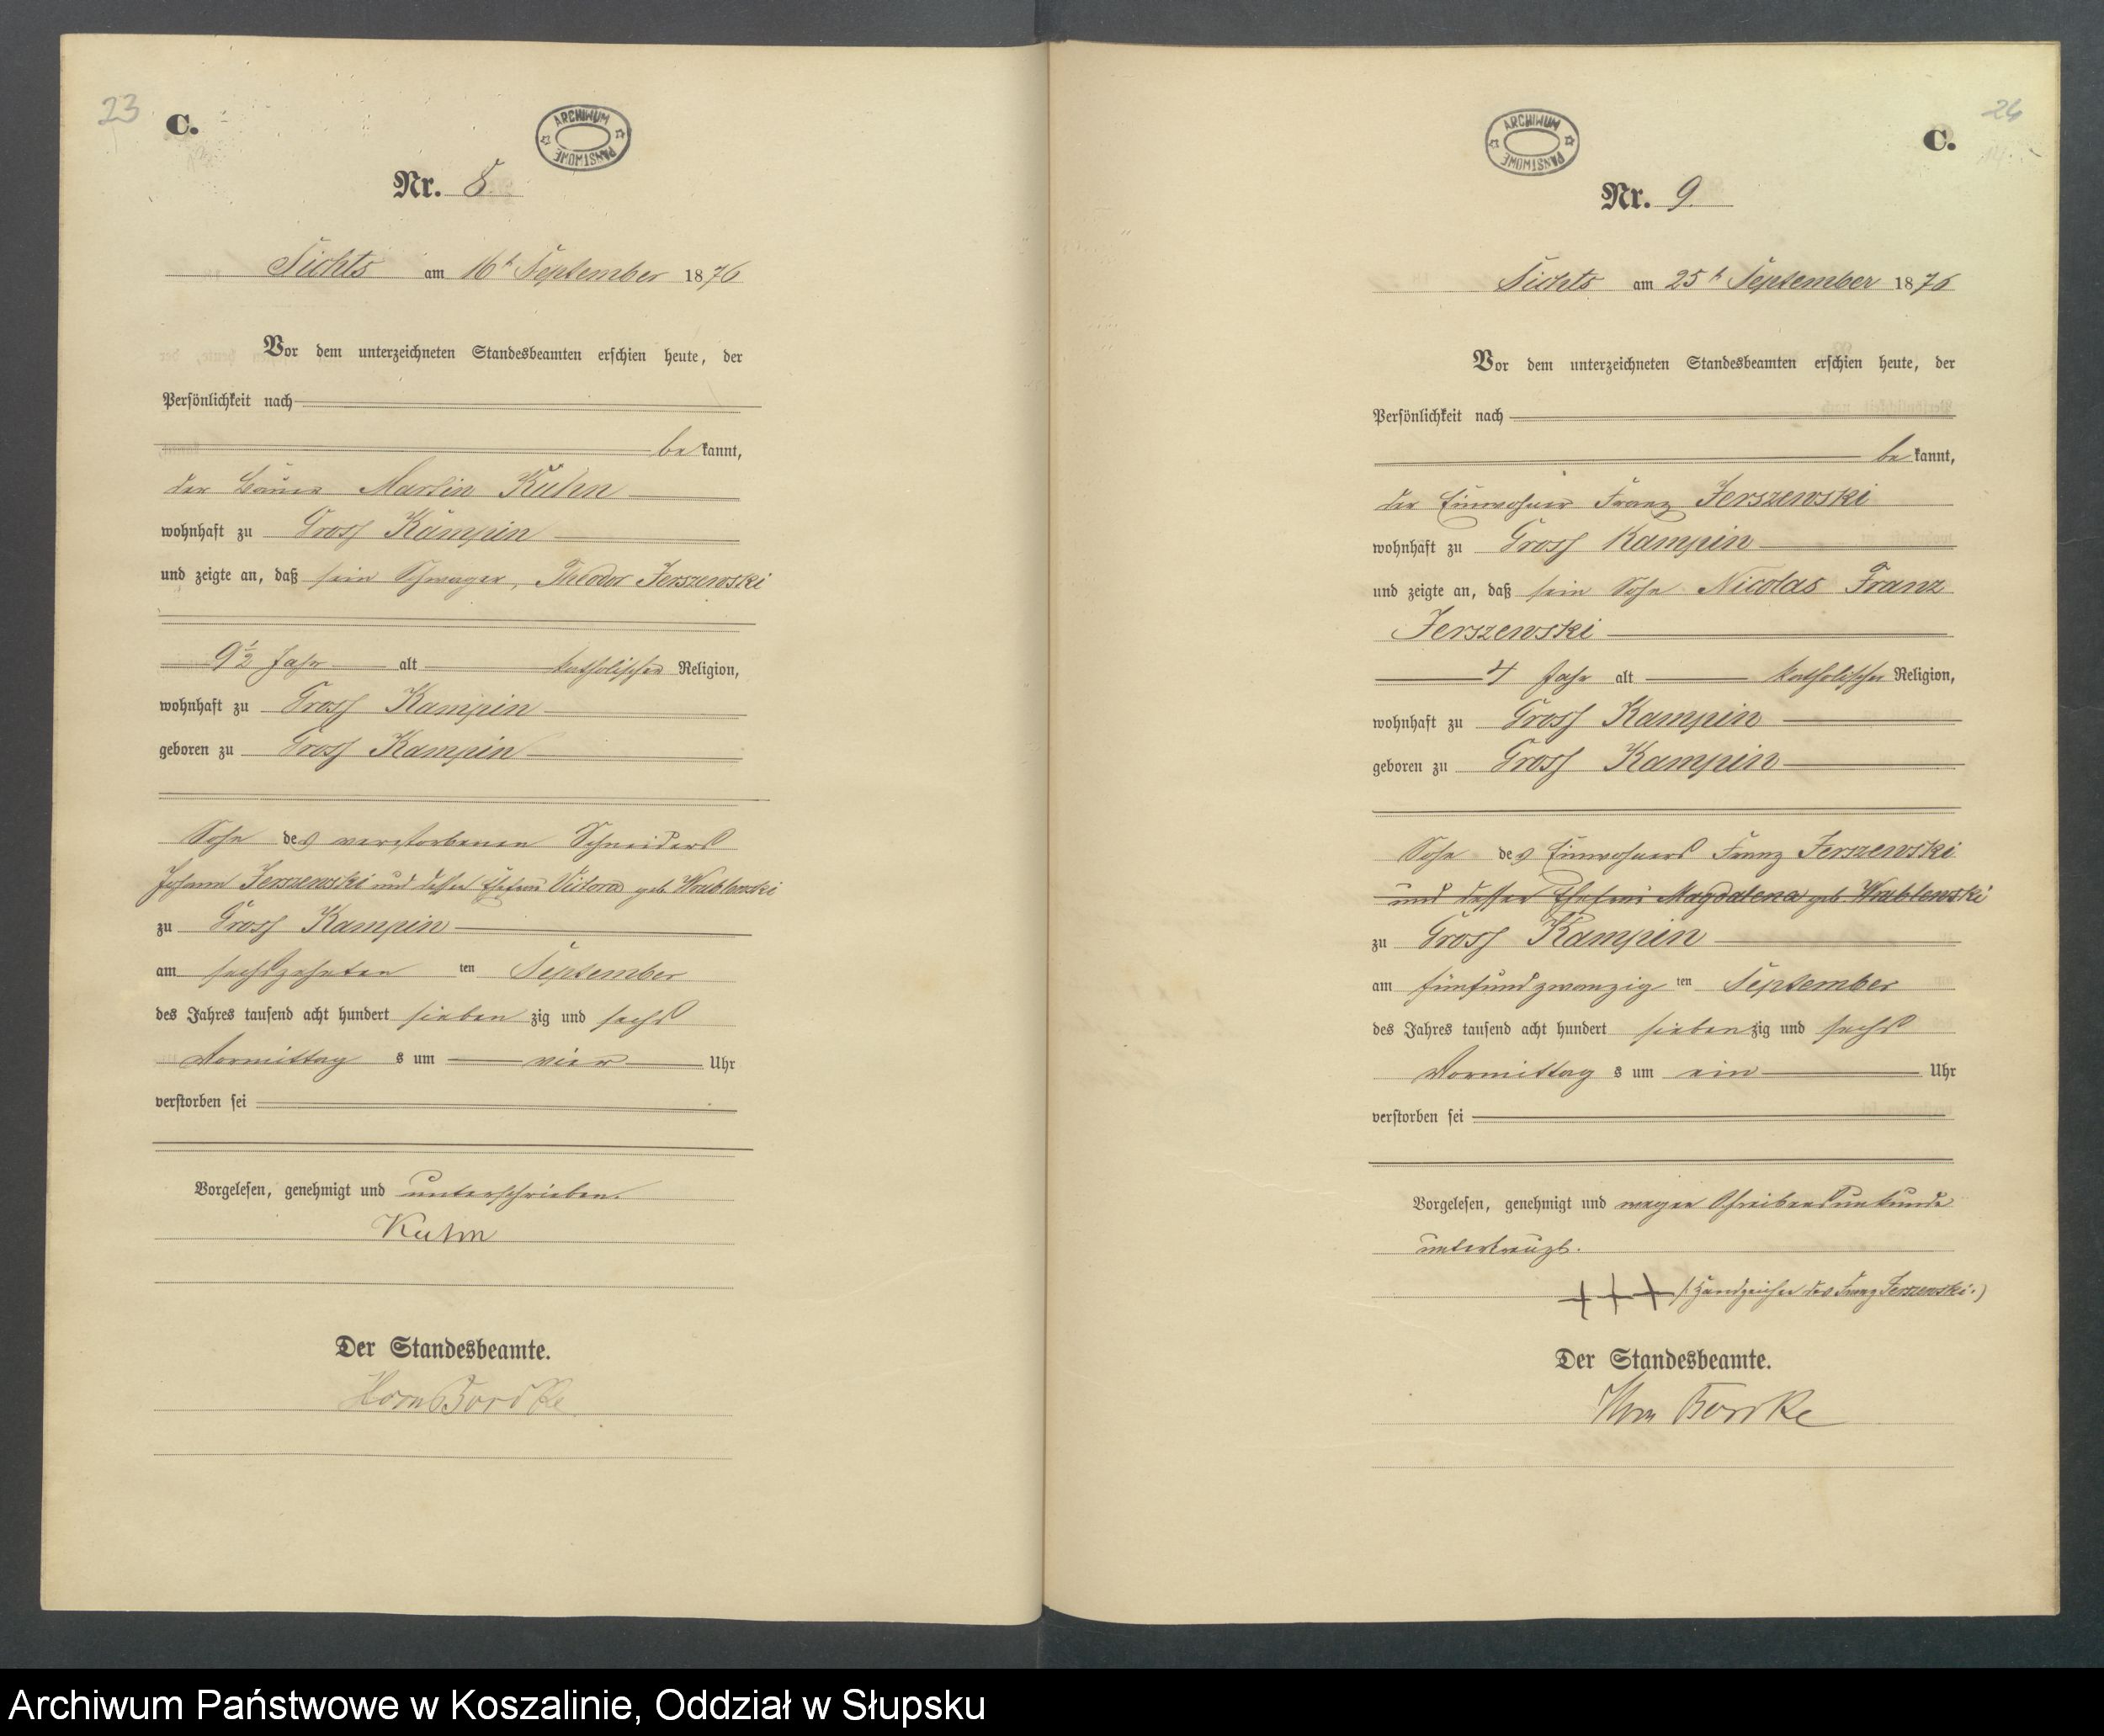 23
C.
ARCHIWUM PAŃSTWOWE
Nr. 8.
Sichts am 16t September 1876
Vor dem unterzeichneten Standesbeamten erschien heute, der
Persönlichkeit nach
bekannt,
der Bauer Martin Kuhn
wohnhaft zu Gross Kampin
und zeigte an, daß sein Schwager, Theodor Jerszewski
9½ Jahr alt katholischer Religion,
wohnhaft zu Gross Kampin
geboren zu Gross Kampin
Sohn des verstorbenen Schneiders
Johann Jerszewski und dessen Ehefrau Victora geb Wrublewski
zu Gross Kampin
am sechszehnten ten September
des Jahres tausend acht hundert siebenzig und sechs
Vormittags um vier Uhr
verstorben sei
Vorgelesen, genehmigt und unterschrieben.
Kuhn
Der Standesbeamte.
24
C.
ARCHIWUM PAŃSTWOWE
Nr. 9.
Sichts am 25t September 1876
Vor dem unterzeichneten Standesbeamten erschien heute, der
Persönlichkeit nach
bekannt,
der Einwohner Franz Jerszewski
wohnhaft zu Gross Kampin
und zeigte an, daß sein Sohn Nicolas Franz
Jerszewski
4 Jahr alt katholischer Religion,
wohnhaft zu Gross Kampin
geboren zu Gross Kampin
Sohn des Einwohners Franz Jerszewski
und dessen Ehefrau Magdalena geb. Wrublewski
zu Gross Kampin
am fünfundzwanzigten September
des Jahres tausend acht hundert siebenzig und sechs
Vormittags um ein Uhr
verstorben sei
Vorgelesen, genehmigt und wegen Schreibensunkunde
unterkreuzt.
+++ /:Handzeichen des Franz Jerszewski:)
Der Standesbeamte.
Archiwum Państwowe w Koszalinie, Oddział w Słupsku